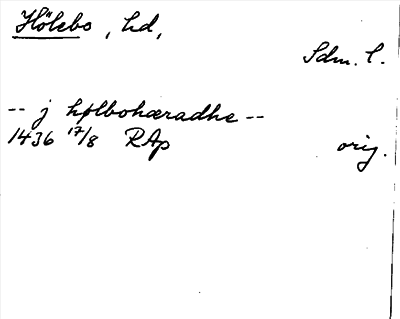 Hölebo, hd,
Sdm. l.
-- j hølbohæradhe --
1436 17/8 RAp orig.